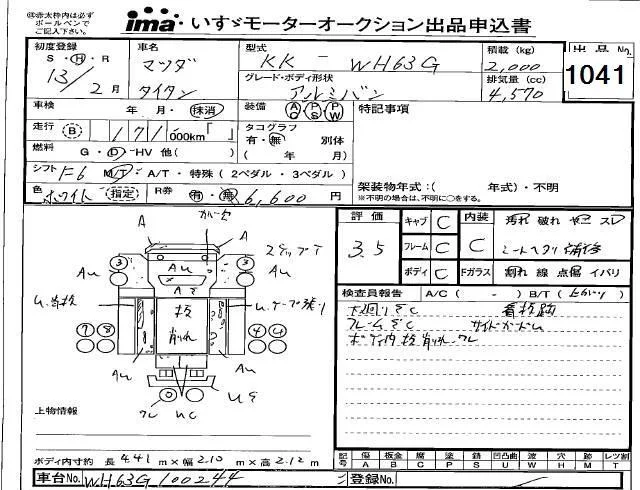 ㊟赤太枠内は必ず
ボールペンで
ご記入下さい。
ima いすゞモーターオークション出品申込書
初度登録 車名 型式 積載 (kg) 出品No.
S・H・R マツダ KK - WH63G 2,000 1041
13/2月 タイタン グレード・ボディ形状 排気量 (cc)
アルミバン 4,570
車検 年 月・抹消 装備 AC PS PW 特記事項
走行 B 171,000km「 」 タコグラフ
有・無 別体
燃料 G・D・HV 他( ) ( 年 月)
シフト F6 M/T・A/T・特殊 (2ペダル・3ペダル)
架装物年式:( 年式)・不明
色 ホワイト 指定 R券 有・無 6,600円 ※不明の場合は、不明に○をする。
評価 3.5 キャブ C 内装 C 汚れ 破れ ヤニ スレ
フレーム C シートヘタリ 補修
ボディ C Fガラス 割れ 線 点傷 イバリ
検査員報告 A/C ( - ) B/T ( )
下廻りサC 看板跡
フレームサC サイドガードム
ボディ内 抜 削れ ワレ
A カバー欠 A
ステップT
3 Au Au Au 3
Aγ
ム.看板 抜 ム.テープ張り
削れ
7 8 4 4
Au Au
UG
ワレ UC
上物情報
ボディ内寸約 長 4.41 m×幅 2.10 m×高 2.12 m
記号 傷 板金 腐 塗 錆 凹凸曲 波 穴 跡 レツ割
A B C P S U W H M T
車台No. WH63G-100244 登録No.